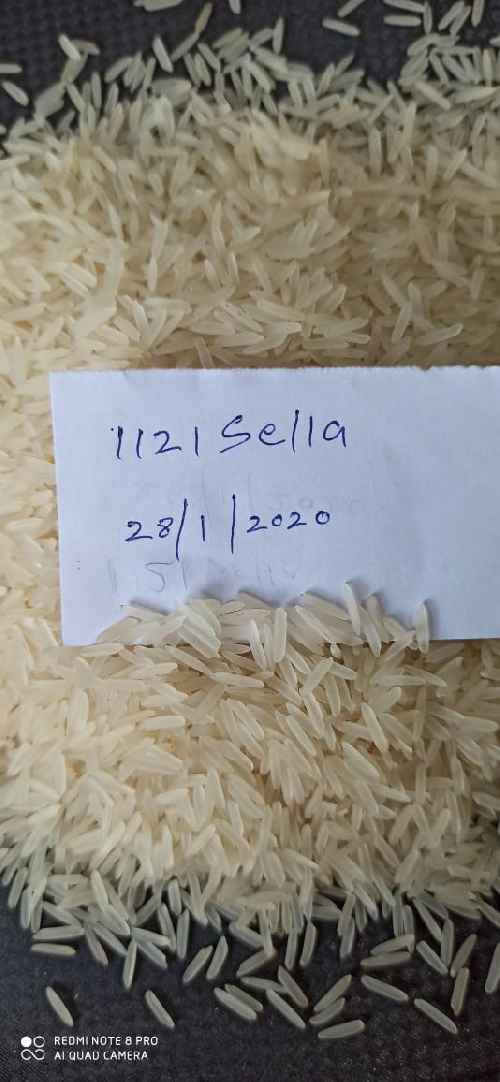 1121 Sella
28/1/2020
REDMI NOTE 8 PRO
AI QUAD CAMERA